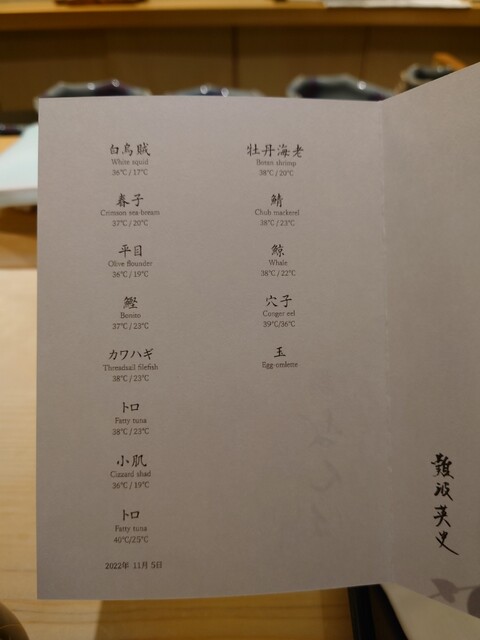 白烏賊
White squid
36℃ / 17℃
春子
Crimson sea-bream
37℃ / 20℃
平目
Olive flounder
36℃ / 19℃
鰹
Bonito
37℃ / 23℃
カワハギ
Threadsail filefish
38℃ / 23℃
トロ
Fatty tuna
38℃ / 23℃
小肌
Gizzard shad
36℃ / 19℃
トロ
Fatty tuna
40℃/25℃
2022年 11月 5日
牡丹海老
Botan shrimp
38℃ / 20℃
鯖
Chub mackerel
38℃ / 23℃
鯨
Whale
38℃ / 22℃
穴子
Conger eel
39℃/36℃
玉
Egg-omlette
難波英史